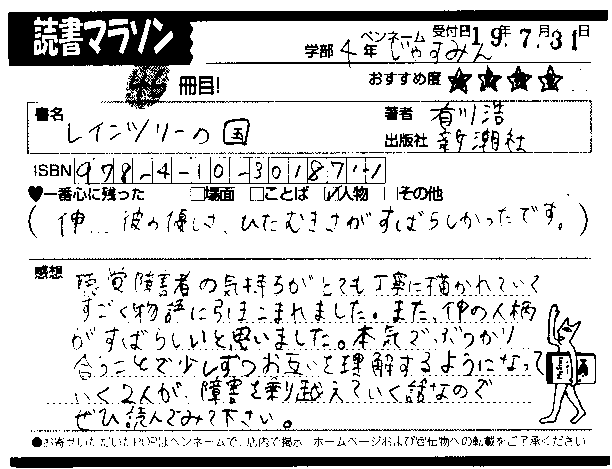 読書マラソン
受付日19年7月31日
ペンネーム
学部4年 じゃすみん
46冊目!
おすすめ度★★★★
書名 レインツリーの国
著者 有川浩
出版社 新潮社
ISBN 978-4-10-301871-1
♥一番心に残った □場面 □ことば ☑人物 □その他
(伸… 彼の優しさ、ひたむきさがすばらしかったです。)
感想
聴覚障害者の気持ちがとても丁寧に描かれていて
すごく物語に引きこまれました。また、伸の人柄
がすばらしいと思いました。本気でぶつかり
合うことで少しずつお互いを理解するようになって
いく2人が、障害を乗り越えていく話なので
ぜひ読んでみて下さい。
●お寄せいただいたPOPはペンネームで、店内で掲示、ホームページおよび宣伝物への転載をご了承ください